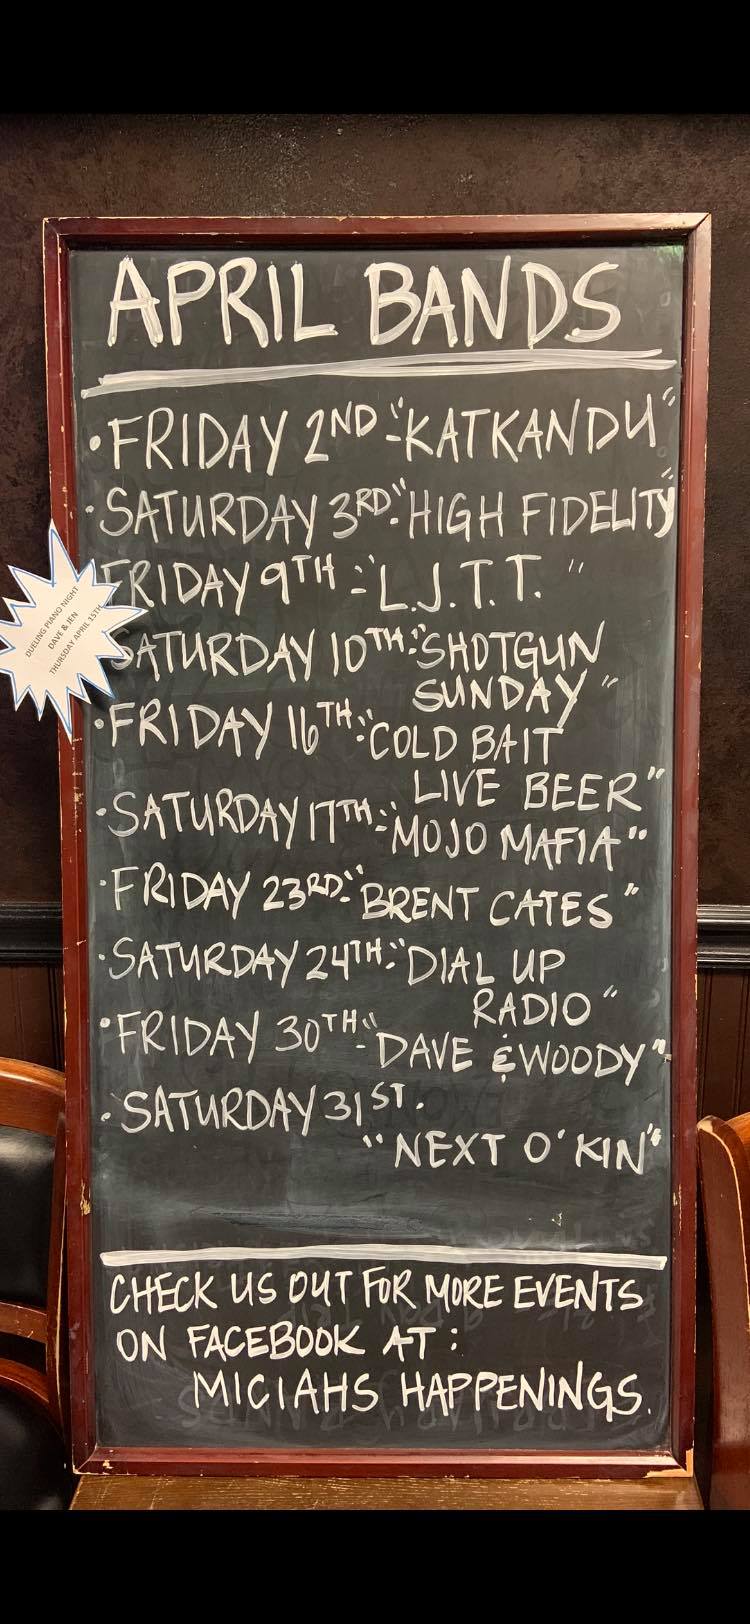 APRIL BANDS
• FRIDAY 2ND - "KATKANDU"
• SATURDAY 3RD - "HIGH FIDELITY"
FRIDAY 9TH - "L.J.T.T."
SATURDAY 10TH - "SHOTGUN
SUNDAY"
• FRIDAY 16TH - "COLD BAIT
LIVE BEER"
• SATURDAY 17TH - "MOJO MAFIA"
• FRIDAY 23RD - "BRENT CATES"
• SATURDAY 24TH - "DIAL UP
RADIO"
• FRIDAY 30TH - "DAVE & WOODY"
• SATURDAY 31ST.
"NEXT O'KIN"
CHECK US OUT FOR MORE EVENTS
ON FACEBOOK AT:
MICIAHS HAPPENINGS.
DUELING PIANO NIGHT
DAVE & JEN
THURSDAY APRIL 15TH